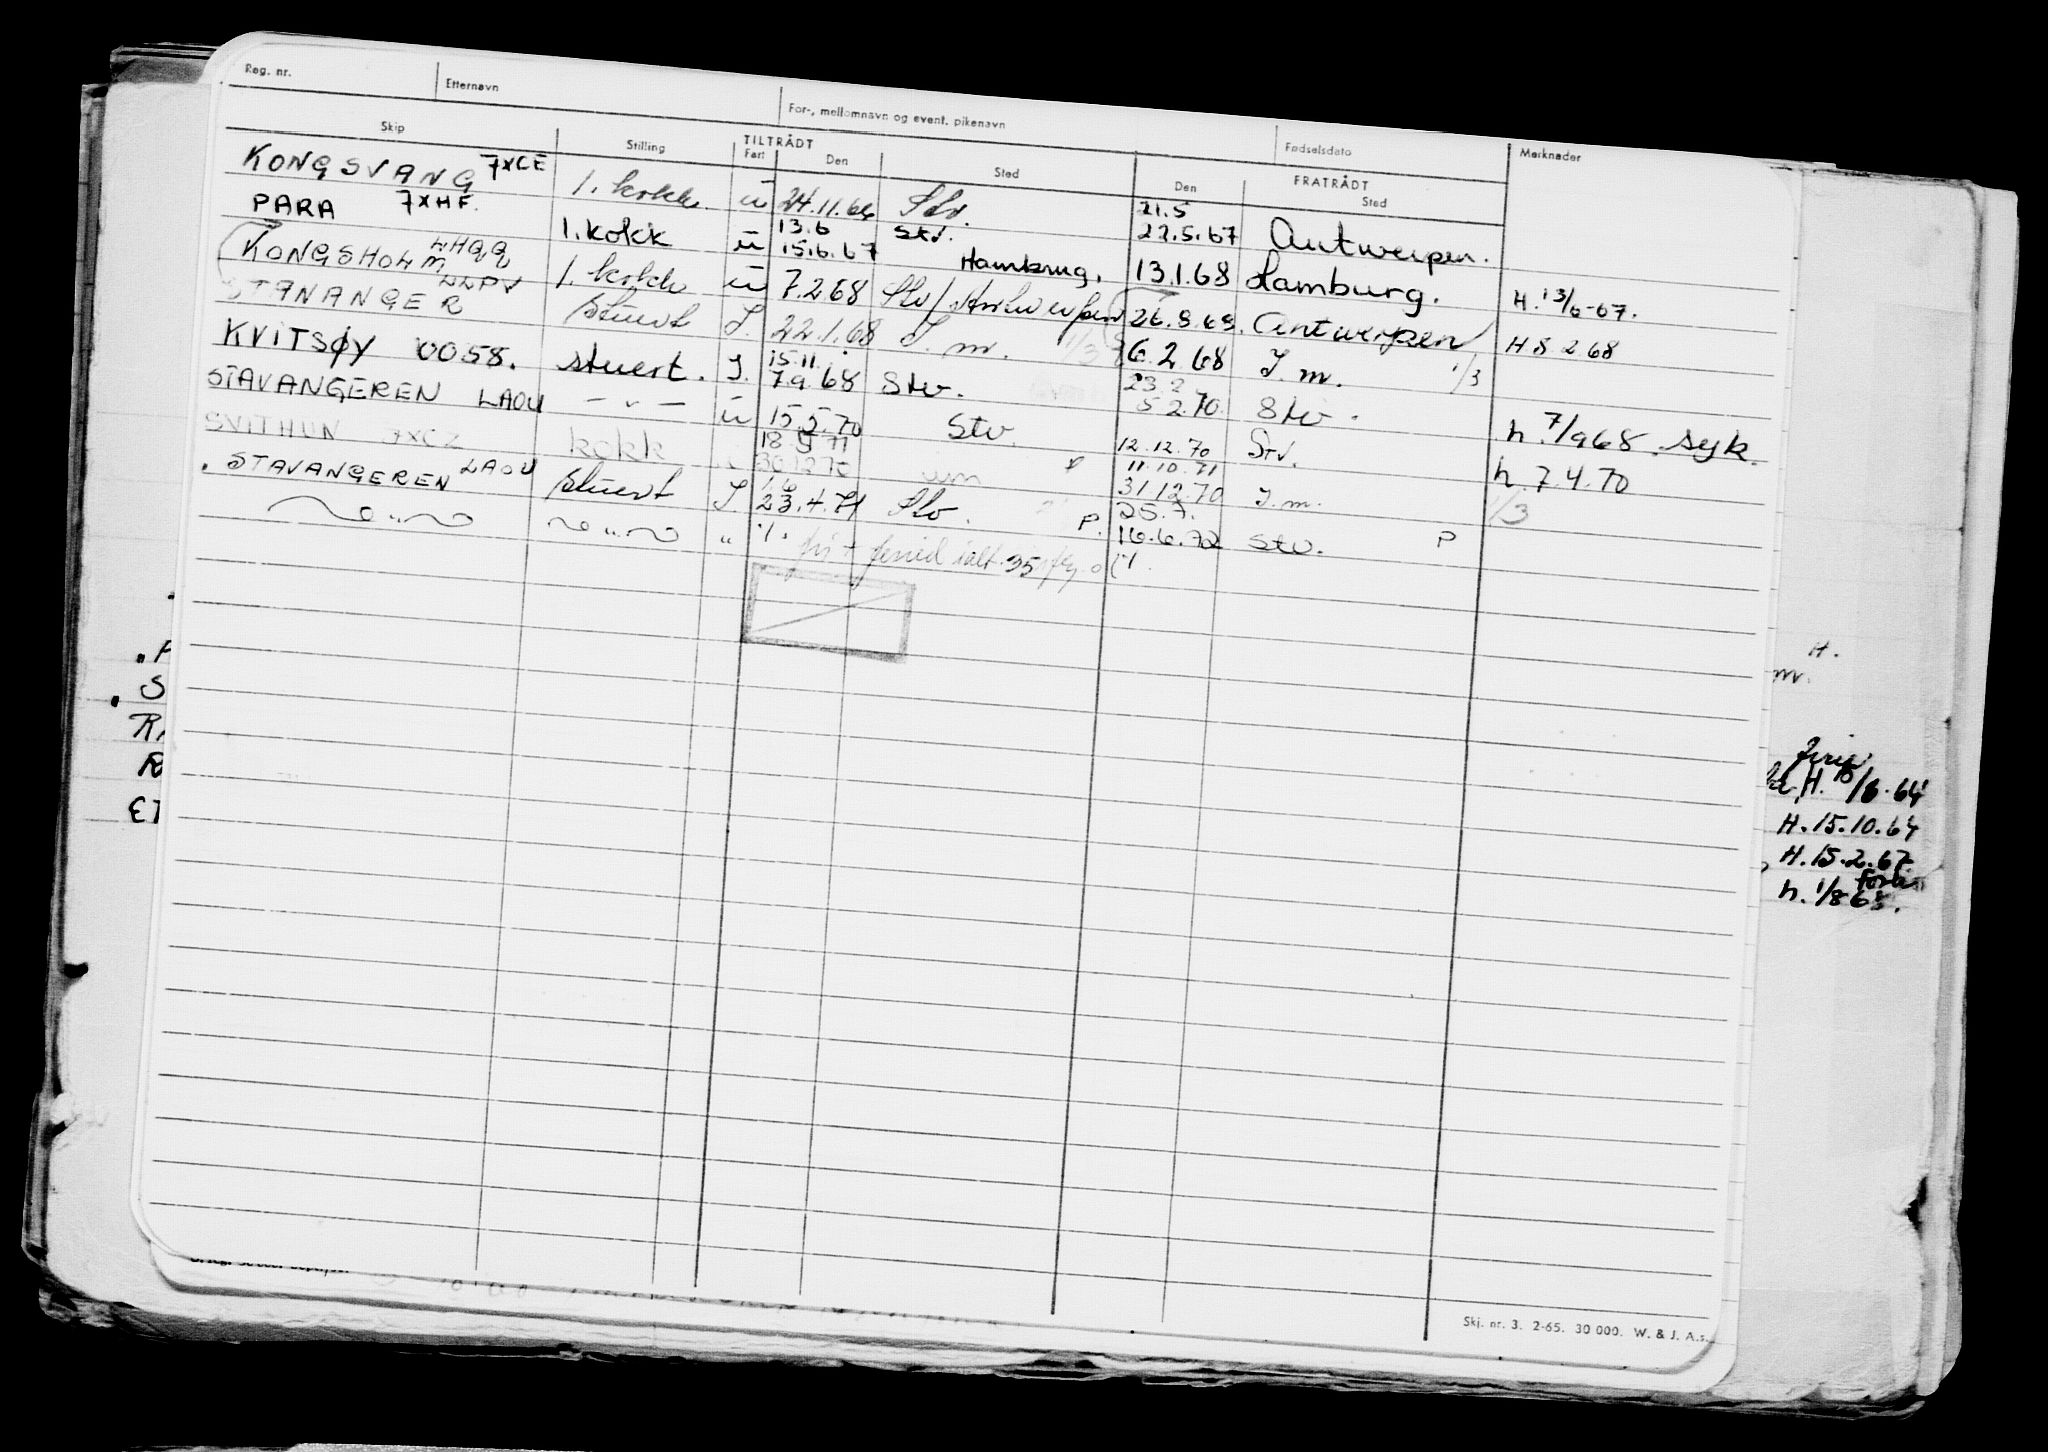 Reg. nr. Etternavn For-, mellomnavn og event. pikenavn Fødselsdato Merknader
Skip Stilling TILTRÅDT Fart Den Sted FRATRÅDT Den Sted
KONGSVANG 7XCE 1. kokk u 24.11.66 Stv. 21.5 22.5.67 Antwerpen.
PARA 7XHF. 1. kokk u 13.6 15.6.67 Stv. Hambrug. 13.1.68 Hamburg. H. 13/6-67.
KONGSHOLM LHQQ 1. kokk u 7.2.68 Stv/Antwerpen 26.8.68. Antwerpen H 8 2 68
STANANGER LLPV Stuert I. 22.1.68 I. m. 1/3 6.2.68 I. m. 1/3
KVITSØY OO58. stuert. I. 15.11. 7.9.68 Stv. 23.2 5 2.70. Stv. h. 7/9 68. syk.
STAVANGEREN LAOU - " - u 15.5.70 Stv. 12.12.70 Stv. h. 7.4.70
SVITHUN 7XCZ kokk 18.5.71 30.12.70 um P 11.10.71 31.12.70 I. m. 1/3
. STAVANGEREN LAOU Stuert I. 1.6 23.4.71 Stv. P. 25.7. 16.6.72 Stv. P
" " " ./. fri + feried ialt 35 ./.
Skj. nr. 3. 2-65. 30 000. W. & J. A.s.
H.
m.
ferie
H. 15/6-64
H. 15.10.64
H. 15.2.67
h. 1/8 68.